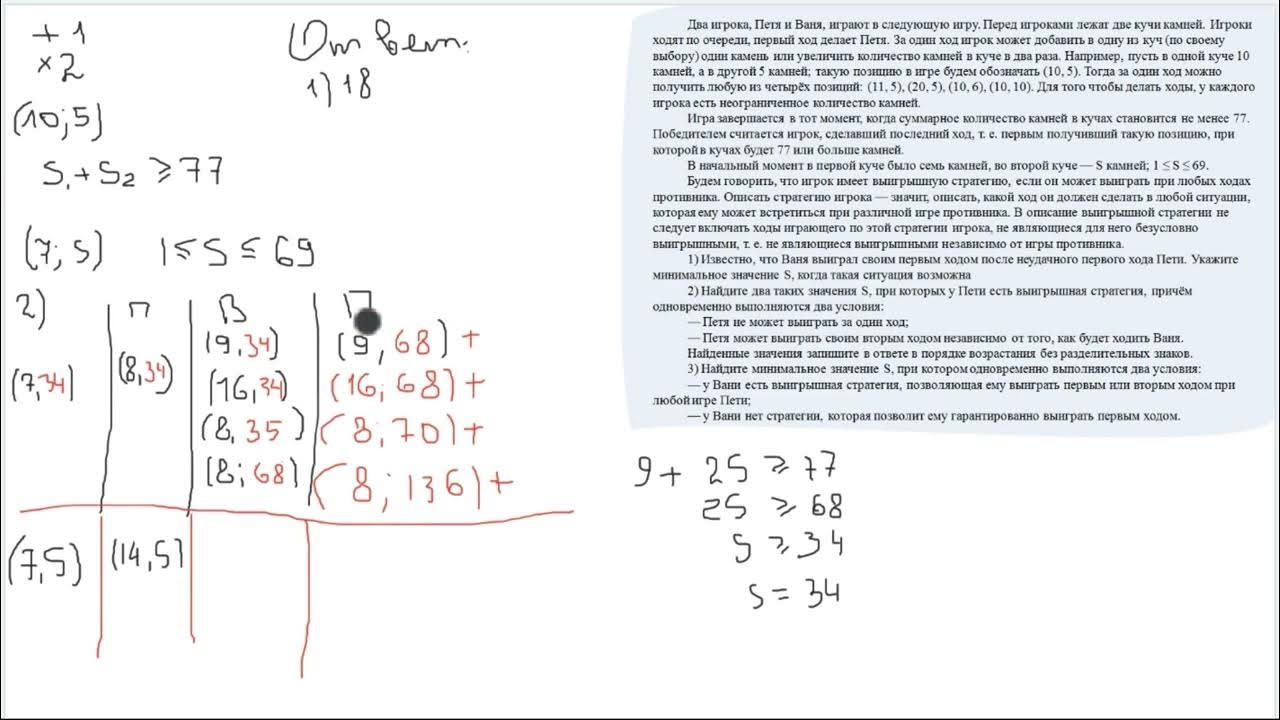 + 1
× 2
(10; 5)
S₁ + S₂ ⩾ 77
(7; S) 1 ≤ S ≤ 69
Ответ:
1) 18
2)
П В П
(7,34) (8,34) (9,34) (9,68) +
(16,34) (16,68) +
(8,35) (8;70) +
(8;68) (8;136) +
(7,S) (14,S)
Два игрока, Петя и Ваня, играют в следующую игру. Перед игроками лежат две кучи камней. Игроки
ходят по очереди, первый ход делает Петя. За один ход игрок может добавить в одну из куч (по своему
выбору) один камень или увеличить количество камней в куче в два раза. Например, пусть в одной куче 10
камней, а в другой 5 камней; такую позицию в игре будем обозначать (10, 5). Тогда за один ход можно
получить любую из четырёх позиций: (11, 5), (20, 5), (10, 6), (10, 10). Для того чтобы делать ходы, у каждого
игрока есть неограниченное количество камней.
Игра завершается в тот момент, когда суммарное количество камней в кучах становится не менее 77.
Победителем считается игрок, сделавший последний ход, т. е. первым получивший такую позицию, при
которой в кучах будет 77 или больше камней.
В начальный момент в первой куче было семь камней, во второй куче — S камней; 1 ≤ S ≤ 69.
Будем говорить, что игрок имеет выигрышную стратегию, если он может выиграть при любых ходах
противника. Описать стратегию игрока — значит, описать, какой ход он должен сделать в любой ситуации,
которая ему может встретиться при различной игре противника. В описание выигрышной стратегии не
следует включать ходы играющего по этой стратегии игрока, не являющиеся для него безусловно
выигрышными, т. е. не являющиеся выигрышными независимо от игры противника.
1) Известно, что Ваня выиграл своим первым ходом после неудачного первого хода Пети. Укажите
минимальное значение S, когда такая ситуация возможна
2) Найдите два таких значения S, при которых у Пети есть выигрышная стратегия, причём
одновременно выполняются два условия:
— Петя не может выиграть за один ход;
— Петя может выиграть своим вторым ходом независимо от того, как будет ходить Ваня.
Найденные значения запишите в ответе в порядке возрастания без разделительных знаков.
3) Найдите минимальное значение S, при котором одновременно выполняются два условия:
— у Вани есть выигрышная стратегия, позволяющая ему выиграть первым или вторым ходом при
любой игре Пети;
— у Вани нет стратегии, которая позволит ему гарантированно выиграть первым ходом.
9 + 2S ⩾ 77
2S ⩾ 68
S ⩾ 34
S = 34